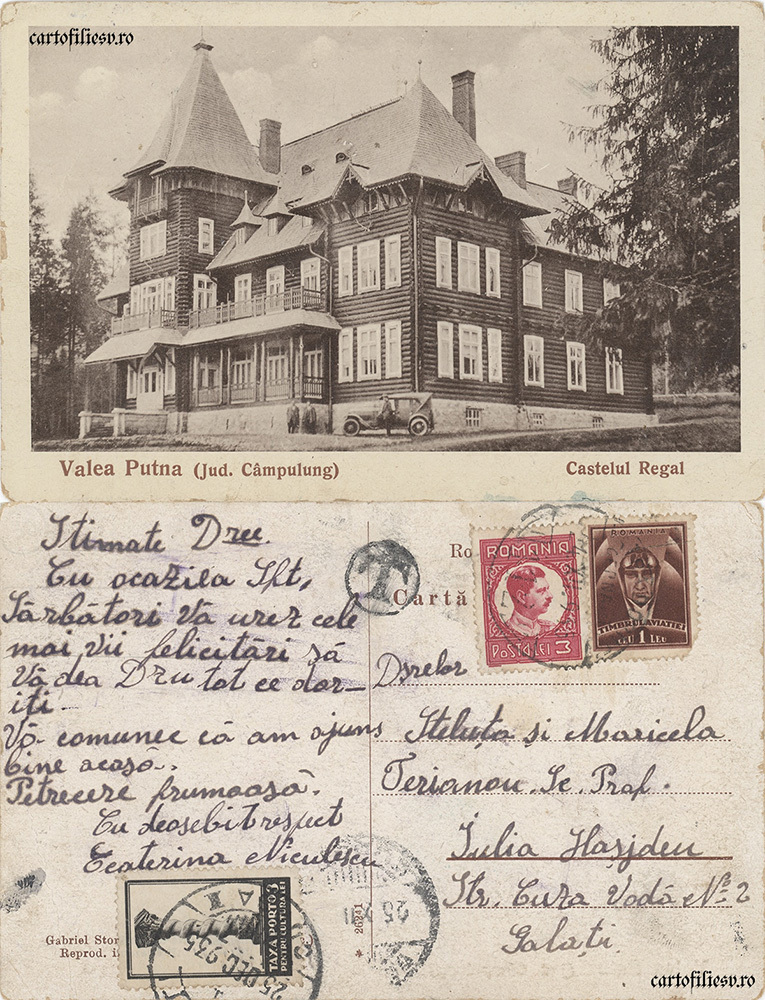 cartofiliesv.ro
Valea Putna (Jud. Câmpulung)
Castelul Regal
Stimate Dre.
Cu ocazila Sft,
Sărbători Vă urez cele
mai vii felicitări să
Vă dea Dzu tot ce dor-
iți.
Vă comunec că am ajuns
bine acasă.
Petrecere frumoasă.
Cu deosebit respect
Ecaterina Niculescu
T
Ro
Cartă
ROMANIA
POSTA LEI 3
ROMANIA
TIMBRUL AVIATIEI
1 LEU
Dșrelor
Steluța și Maricela
Terianou. Sc. Prof.
Iulia Hașjdeu
Str. Cuza Vodă No 2
Galați.
TAXA PORTO 3
PENTRU CULTURA LEI
25 DEC 935
Gabriel Stor
Reprod. i
* 26241
cartofiliesv.ro